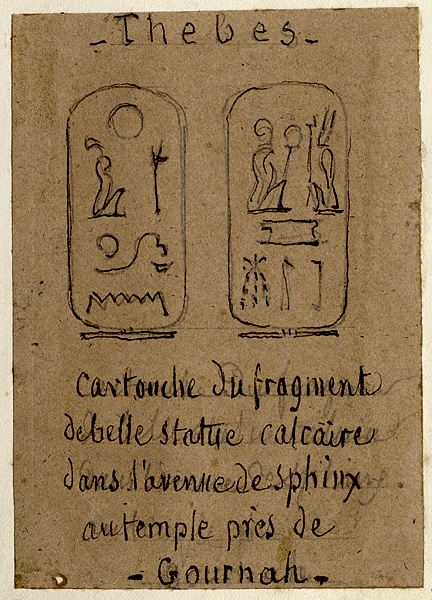 - Thebes -
cartouche du fragment
de belle statue calcaire
dans l'avenue de sphinx
au temple près de
- Gournah -